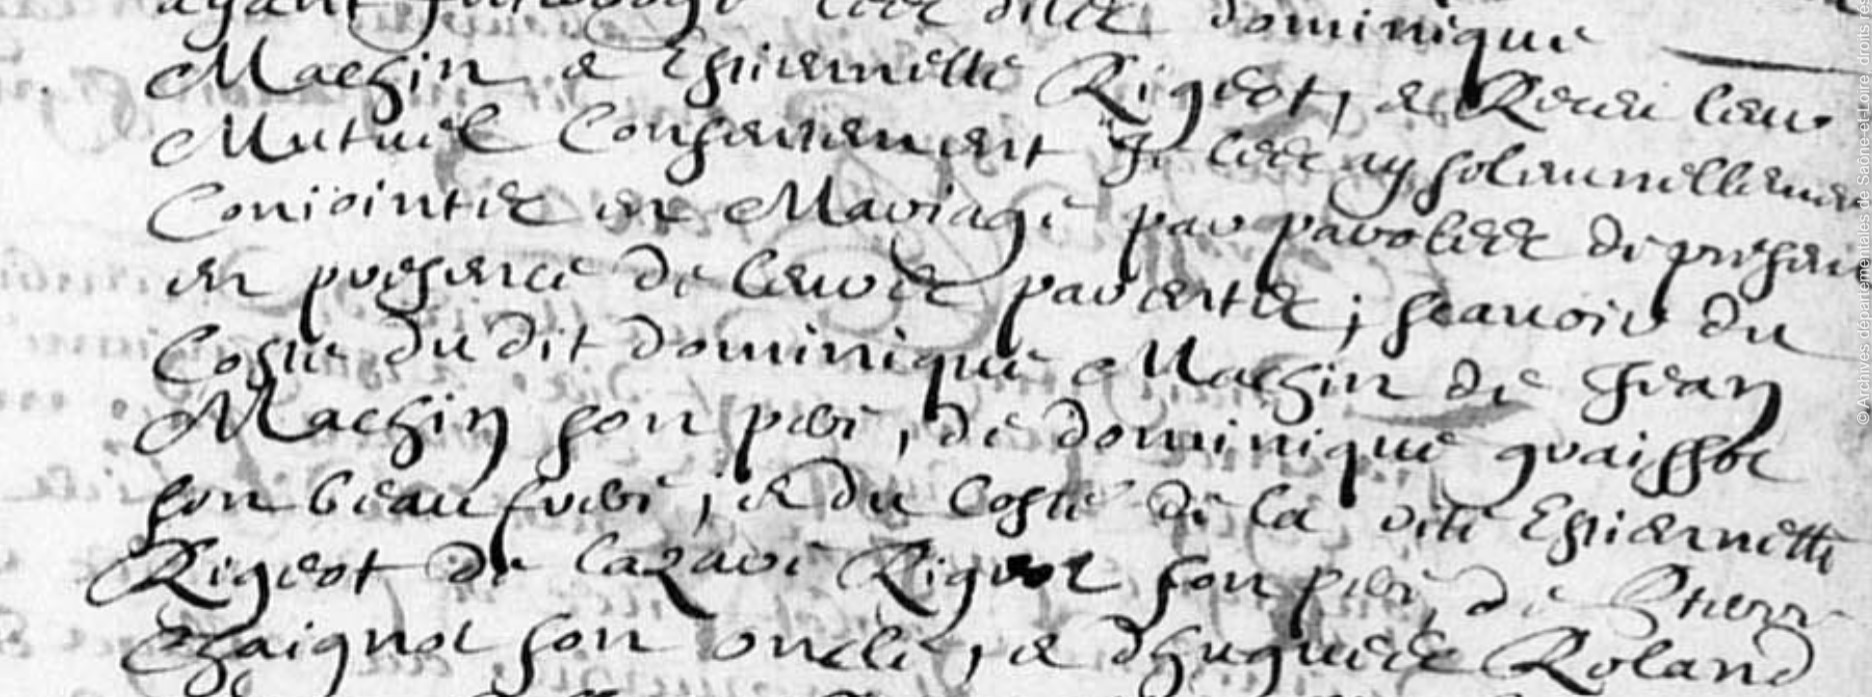 ayant interrogé les dits dominique
Machin & Estiennette Rigeot, & Receu leur
Mutuel Consentement Je les ay solennellement
Conioincts en Mariage par parolles de present
en presence de leurs parents ; scavoir du
Costé du dit dominique Machin de Jean
Machin son pere, de dominique
son beau frere ; & du Costé de la dite Estiennette
Rigeot de Lazare Rigeot son pere, de Pierre
Chaignot son oncle, & d'hugues Roland
© Archives départementales de Saône-et-Loire, droits rés